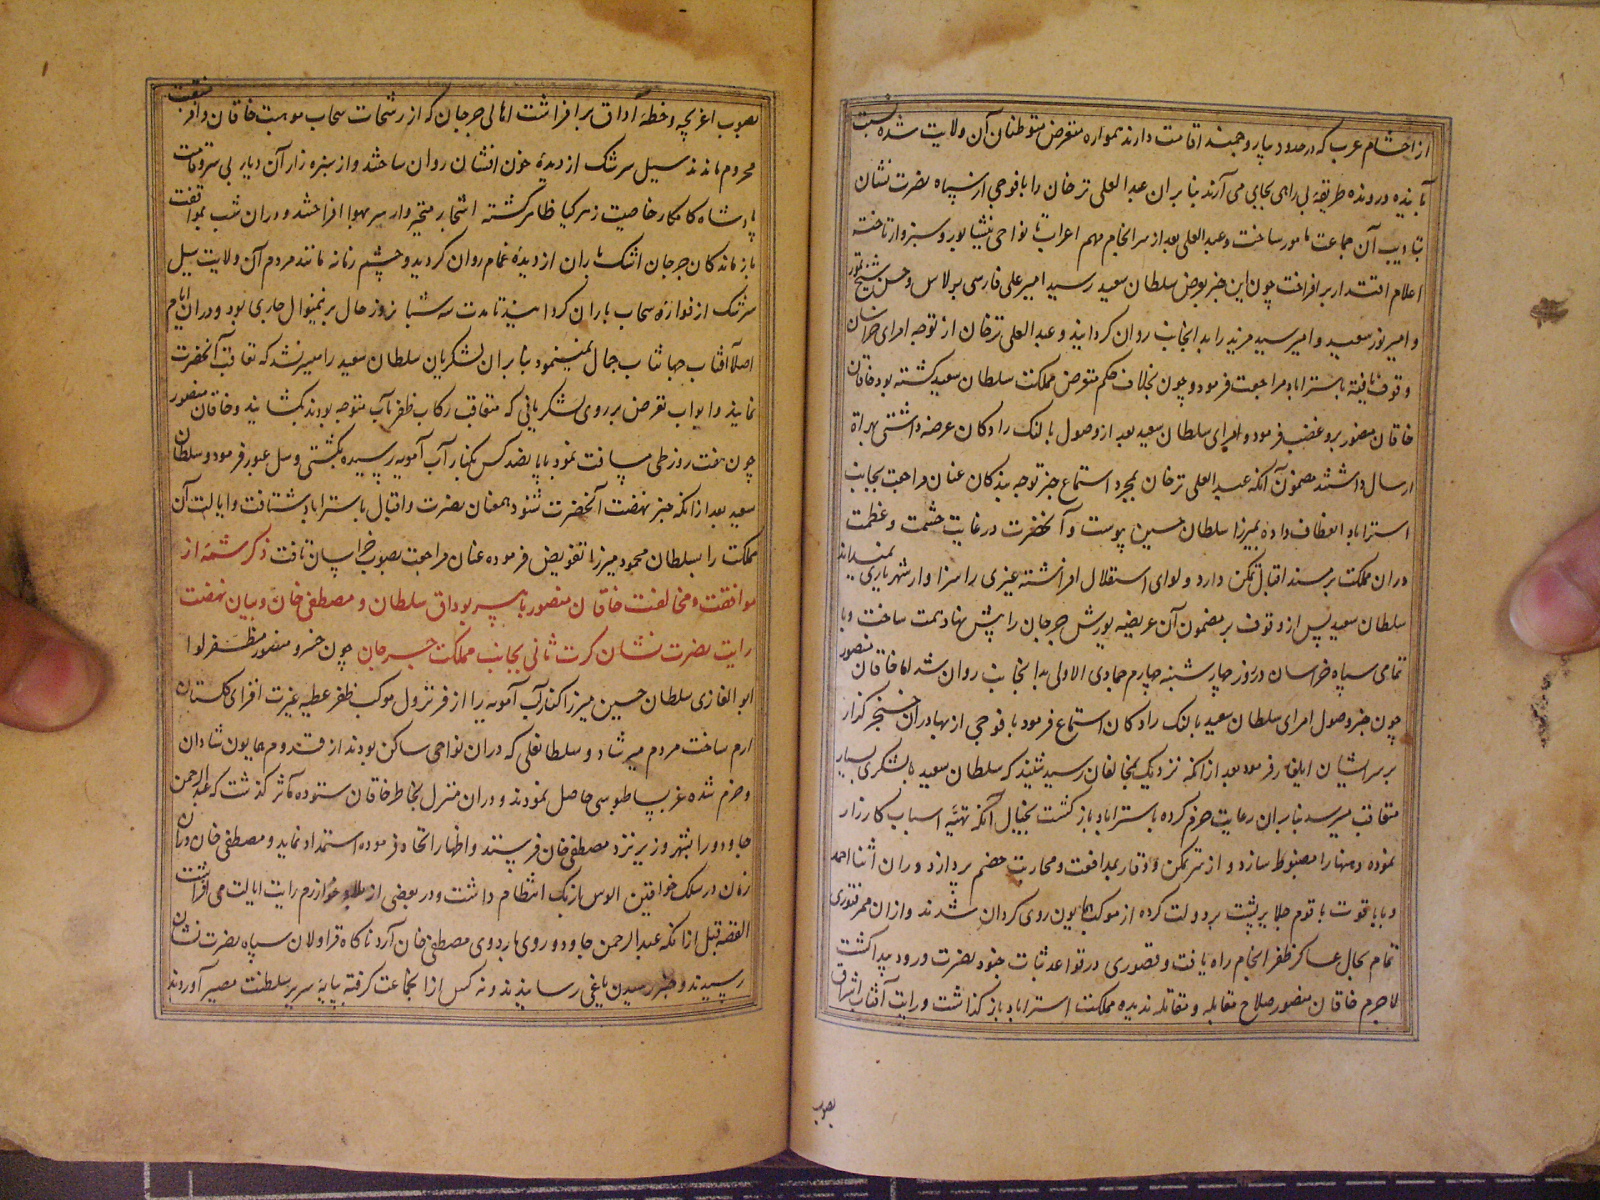 از احشام عرب که در حدود بیار و جمند اقامت دارند همواره متعرض متوطنان آن ولایت شده نسبت
آینده و رونده طریقه بی راهی بجای می آرند بنا بران عبد العلی ترخان را با فوجی از سپاه نصرت نشان
بتادیب آن جماعت مامور ساخت و عبد العلی بعد از سرانجام مهم اعراب تا نواحی نیشابور و سبزوار تاخته
اعلام اقتدار بر افراخت چون این خبر بعرض سلطان سعید رسید امیر علی فارسی برلاس و حسن شیخ تمور
و امیر نور سعید و امیر سید مزید را بد انجانب روان کردانید و عبد العلی ترخان از توجه امرای خراسان
وقوف یافته باسترآباد مراجعت فرمود و چون بخلاف حکم متعرض مملکت سلطان سعید کشته بود خاقان
خاقان منصور برو غضب فرمود و امرای سلطان سعید بعد از وصول بالنک رادکان عرضه داشتی بهراة
ارسال داشتند مضمون آنکه عبد العلی ترخان بمجرد استماع خبر توجه بندکان عنان مراجعت بجانب
استراباد انعطاف داده بمیرزا سلطان حسین پیوست و آنحضرت در غایت حشمت و عظمت
دران مملکت بر مسند اقبال تمکن دارد و لوای استقلال افراشته غیری را سزاوار شهریاری نمیداند
سلطان سعید پس از وقوف بر مضمون آن عریضه یورش جرجان را پیش نهاد همت ساخت و با
تمامی سپاه خراسان در روز چهار شنبه چهارم جمادی الاولی بدانجانب روان شد اما خاقان منصور
چون خبر وصول امرای سلطان سعید بالنک رادکان استماع فرمود با فوجی از بهادران خنجر کذار
بر سر ایشان ایلغار فرمود بعد از انکه نزدیک بمخالفان رسید شنید که سلطان سعید با لشکری بسیار
متعاقب میرسد بنا بران رعایت حزم کرده باستراباد باز کشت بخیال آنکه تهیه اسباب کارزار
نموده و منها را مضبوط سازد و از سر تمکن و وقار بمدافعت و محاربت خصم پردازد و دران اثنا احمد
و بابا تحوت با قوم جلایر پشت بر دولت کرده از موکب همایون روی کردان شدند و ازان ممر فتوری
تمام بحال عساکر ظفر انجام راه یافت و قصوری در قواعد ثبات جنود نصرت ورود پیدا کشت
لاجرم خاقان منصور صلاح مقابله و مقاتله ندیده مملکت استراباد باز کذاشت و رایت آفتاب اشراق
بصوب
بصوب اغریچه و خطه آداق بر افراشت اهالی جرجان که از رشحات سحاب موهبت خاقان وافر منقبت
محروم ماندند سیل سرشک از دیده خون افشان روان ساختند و از سبزه زار آن دیار بی سرو قامت
پادشاه کامکار خاصیت زهر کیا ظاهر کشته اشجار متحیروار سر بهوا افراختند و دران شب بموافقت
باز ماندکان جرجان اشک باران از دیده غمام روان کردید و چشم زمانه مانند مردم آن ولایت سیل
سرشک از فواره سحاب باران کردانید تا مدت سه شبانروز حال برینمنوال جاری بود و دران ایام
اصلا آفتاب جهانتاب جمال نمینمود بنا بران لشکریان سلطان سعید را میسر نشد که تعاقب آنحضرت
نمایند و ابواب تعرض بر روی لشکریانی که متعاقب رکاب ظفر مآب متوجه بودند بکشایند و خاقان منصور
چون هفت روز طی مسافت نمود با پانصد کس بکنار آب آمویه رسیده بکشتی و سل عبور فرمود و سلطان
سعید بعد از انکه خبر نهضت آنحضرت شنود بهمعنان نصرت و اقبال باستراباد شتافت و ایالت آن
مملکت را بسلطان محمود میرزا تفویض فرموده عنان مراجعت بصوب خراسان تافت ذکر شمه از
موافقت و مخالفت خاقان منصور با پیر بوداق سلطان و مصطفی خان و بیان نهضت
رایت نصرت نشان کرت ثانی بجانب مملکت جرجان چون خسرو منصور مظفر لوا
ابو الغازی سلطان حسین میرزا کنار آب آمویه را از فر نزول موکب ظفر عطیه غیرت افزای کلستان
ارم ساخت مردم میر شاد و سلطانعلی که دران نواحی ساکن بودند از قدوم همایون شادان
و خرم شده عز بساطبوسی حاصل نمودند و دران منزل بخاطر خاقان ستوده مآثر کذشت که عبد الرحمن
جاودو را بنهر وزیر نزد مصطفی خان فرستد و اظهار اتحاد فرموده استمداد نماید و مصطفی خان دران
زمان در سلک خواقین الوس ازبک انتظام داشت و در بعضی از بلاد خوارزم رایت ایالت می افراشت
القصه قبل از انکه عبد الرحمن جاودو روی باردوی مصطفی خان آرد ناکاه قراولان سپاه نصرت نشان
رسیدند و خبر رسیدن یاغی رسانیدند و نه کس از انجماعت کرفته بپایه سریر سلطنت مصیر آوردند